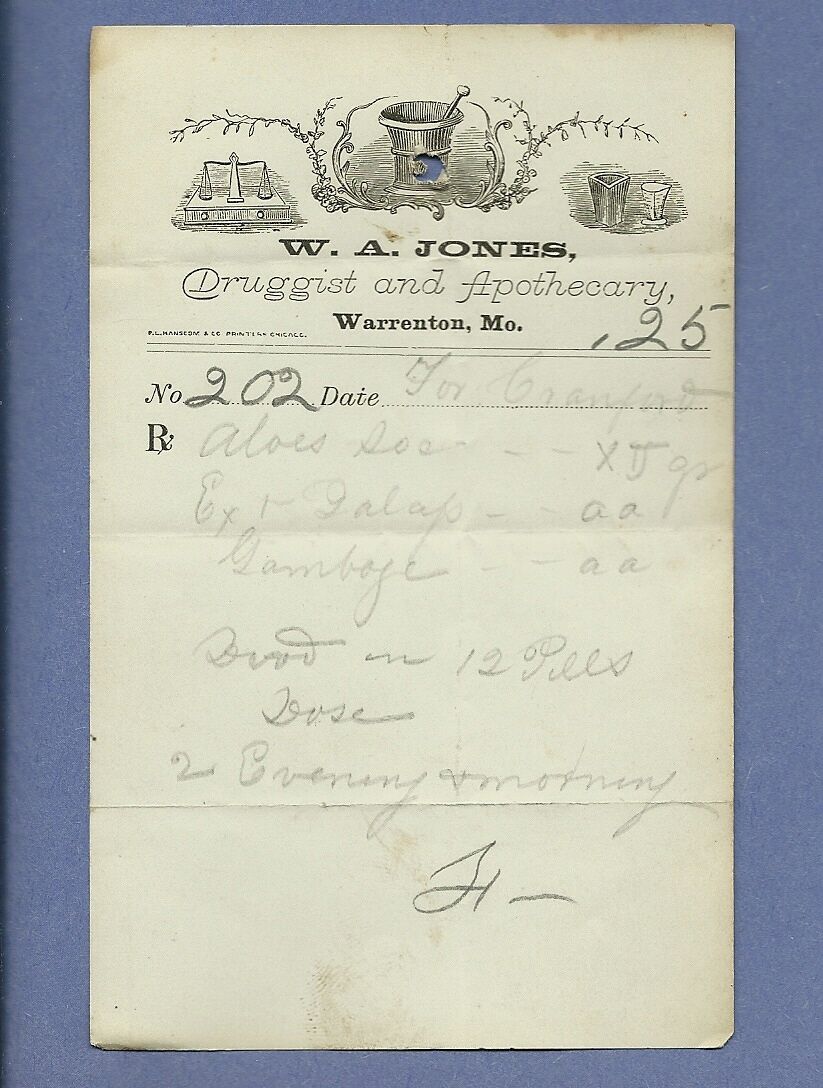 W. A. JONES,
Druggist and Apothecary,
Warrenton, Mo.
P.L. HANSCOM & CO PRINTERS CHICAGO.
.25
No 202 Date For Cranford
℞ Aloes Soc - - gr
Ext Jalap - - aa
Gamboge - - aa
Divd in 12 Pills
Dose
2 Evening & morning
H —